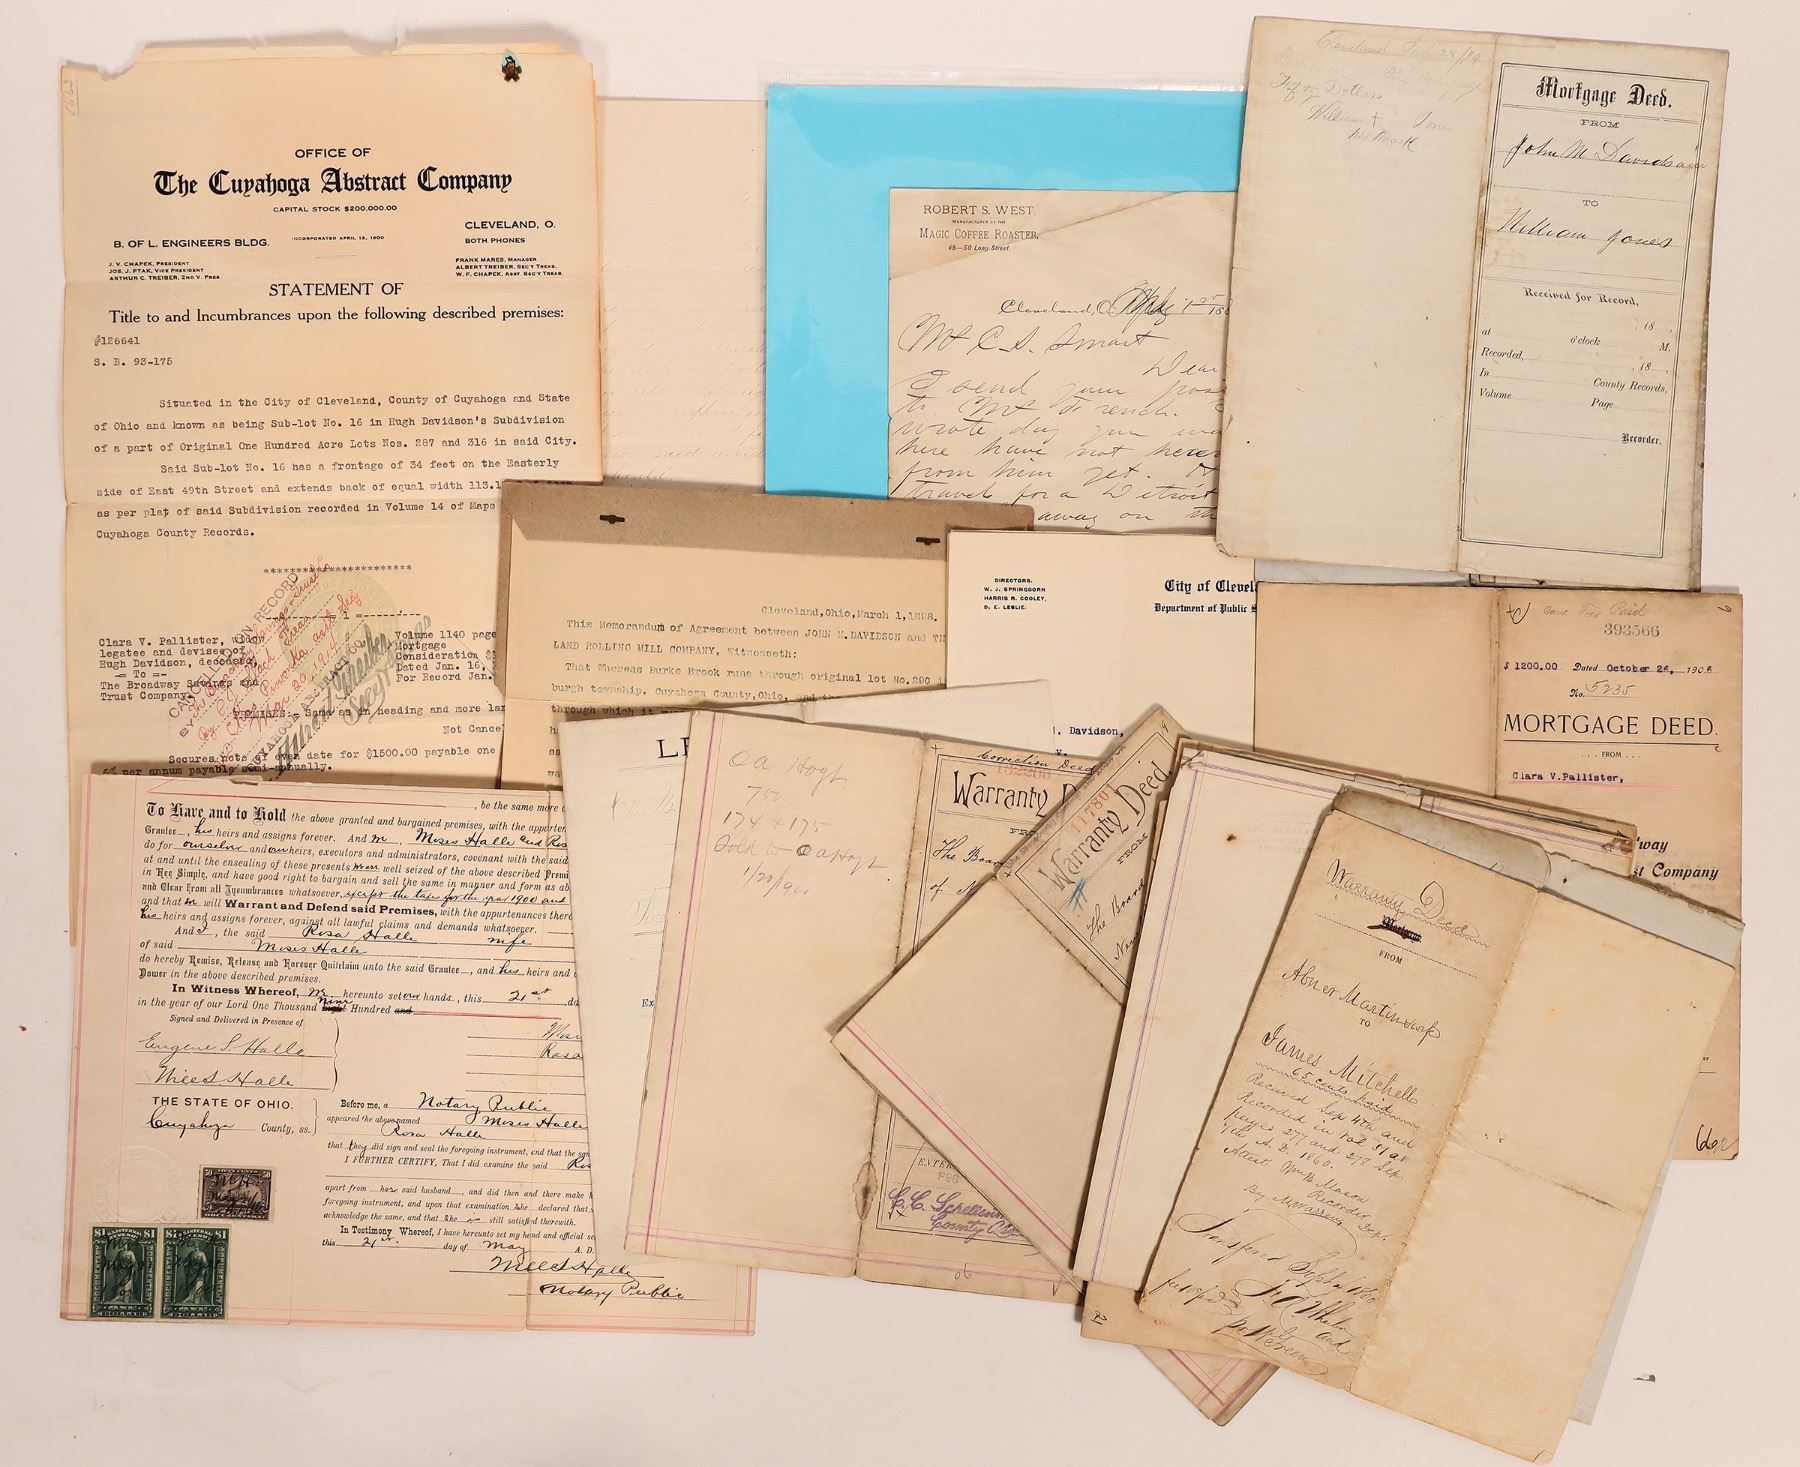 OFFICE OF
The Cuyahoga Abstract Company
CAPITAL STOCK $200,000.00
CLEVELAND, O.
B. OF L. ENGINEERS BLDG.
INCORPORATED APRIL 12, 1900
BOTH PHONES
J. V. CHAPEK, PRESIDENT
JOS. J. PTAK, VICE PRESIDENT
ARTHUR C. TREIBER, 2ND V. PRES.
FRANK MARES, MANAGER
ALBERT TREIBER, SEC'Y TREAS.
W. F. CHAPEK, ASST. SEC'Y TREAS.
STATEMENT OF
Title to and Incumbrances upon the following described premises:
#126641
S. B. 93-175
Situated in the City of Cleveland, County of Cuyahoga and State
of Ohio and known as being Sub-lot No. 16 in Hugh Davidson's Subdivision
of a part of Original One Hundred Acre Lots Nos. 287 and 316 in said City.
Said Sub-lot No. 16 has a frontage of 34 feet on the Easterly
side of East 49th Street and extends back of equal width 113.1
as per plat of said Subdivision recorded in Volume 14 of Maps
Cuyahoga County Records.
**********************
Clara V. Pallister, widow
legatee and devisee of
Hugh Davidson, deceased,
-= To =-
The Broadway Savings and
Trust Company.
Volume 1140 page
Mortgage
Consideration $1
Dated Jan. 16,
For Record Jan.
CANCELLED ON RECORD
PREMISES:- Same as in heading and more lar
Not Cance
Secures note of even date for $1500.00 payable one
6% per annum payable semi-annually.
ROBERT S. WEST,
MANUFACTURER OF THE
MAGIC COFFEE ROASTER,
48-50 Long Street.
Cleveland, O.
Mr C. S. Smart
Dear
I send your pos
to Mr French.
wrote day you wa
here have not heard
from him yet.
travels for a Detroit
away on th
Mortgage Deed.
FROM
John M Davidson
TO
William Jones
Received for Record,
, 18 .
at o'clock M.
Recorded, , 18 .
In County Records,
Volume Page
Recorder.
Fifty Dollars
William + Jones
his Mark
Cleveland, Ohio, March 1, 1888.
This Memorandum of Agreement between JOHN M. DAVIDSON and TH
LAND ROLLING MILL COMPANY, Witnesseth:
That Whereas Burke Brook runs through original lot No. 290 i
burgh township, Cuyahoga County, Ohio, and th
through which it
DIRECTORS:
W. J. SPRINGBORN
HARRIS R. COOLEY,
D. E. LESLIE.
City of Clevela
Department of Public S
. Davidson,
v.
Fee Paid
393566
$ 1200.00 Dated October 26, 1906
No. 5235
MORTGAGE DEED.
FROM
Clara V. Pallister,
way
st Company
To Have and to Hold the above granted and bargained premises, with the appurten
, be the same more o
Grantee , his heirs and assigns forever. And we, Moses Halle and Ros
do for ourselves and our heirs, executors and administrators, covenant with the said
at and until the ensealing of these presents we are well seized of the above described Premi
in Fee Simple, and have good right to bargain and sell the same in manner and form as ab
and Clear from all Incumbrances whatsoever, except the taxes for the year 1900 and
and that we will Warrant and Defend said Premises, with the appurtenances there
his heirs and assigns forever, against all lawful claims and demands whatsoever.
And I, the said Rosa Halle wife
of said Moses Halle
do hereby Remise, Release and Forever Quitclaim unto the said Grantee , and his heirs and
Power in the above described premises.
In Witness Whereof, We hereunto set our hands , this 21st da
in the year of our Lord One Thousand Nine Hundred and
Signed and Delivered in Presence of
Eugene S. Halle
Will S Halle
Mose
Rosa
THE STATE OF OHIO.
Cuyahoga County, ss.
Before me, a Notary Public
appeared the above named Moses Halle
Rosa Halle
that they did sign and seal the foregoing instrument, and that the sa
I FURTHER CERTIFY, That I did examine the said Ros
apart from her said husband , and did then and there make k
foregoing instrument, and upon that examination she declared that s
acknowledge the same, and that she is still satisfied therewith.
In Testimony Whereof, I have hereunto set my hand and official se
this 21st day of May A. D.
Will S Halle
Notary Public
FIFTY CENTS
50
$1 $1
DOCUMENTARY
DOLLAR
$1 $1
DOCUMENTARY
DOLLAR
LE
Ex
Oa Hoyt
750
174 + 175
Sold to O a Hoyt
1/20/1900
Correction Deed
132206
Warranty D
FRO
The Board
of N
ENTER
FEB
County
117801
Warranty Deed.
FROM
The Board
Warranty Deed
Mortgage
FROM
Abner Martin & wife
TO
James Mitchell
65 cents paid
Received Sep 4th and
Recorded in Vol 81 at
pages 277 and 278 Sep
7th A.D. 1860.
Attest Mason
Recorder
By M Warren Dep.
Transferred Sept 1860